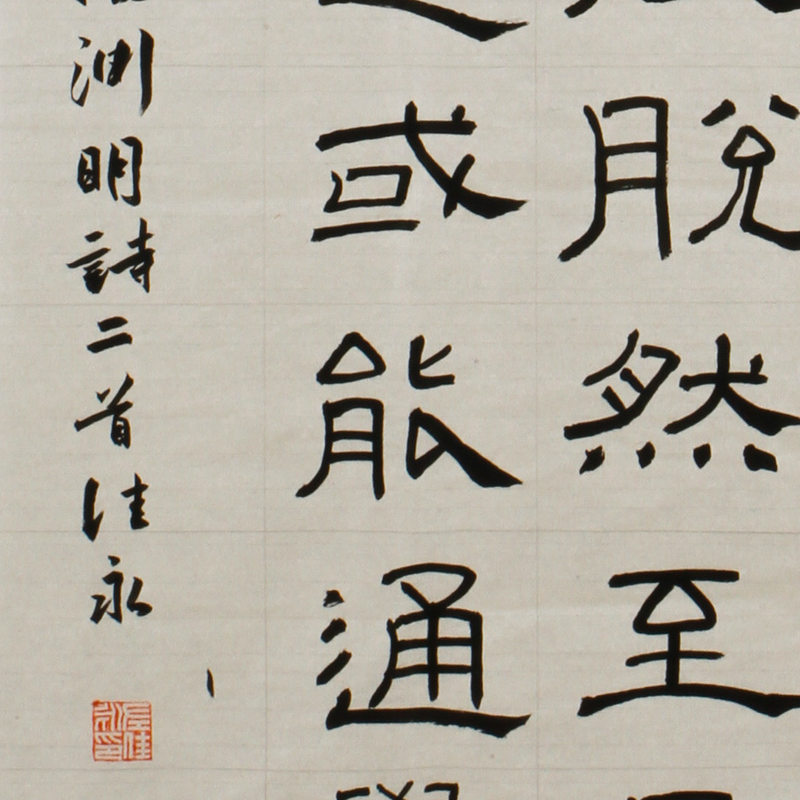 脫然至
或能通
淵明詩二首佳永